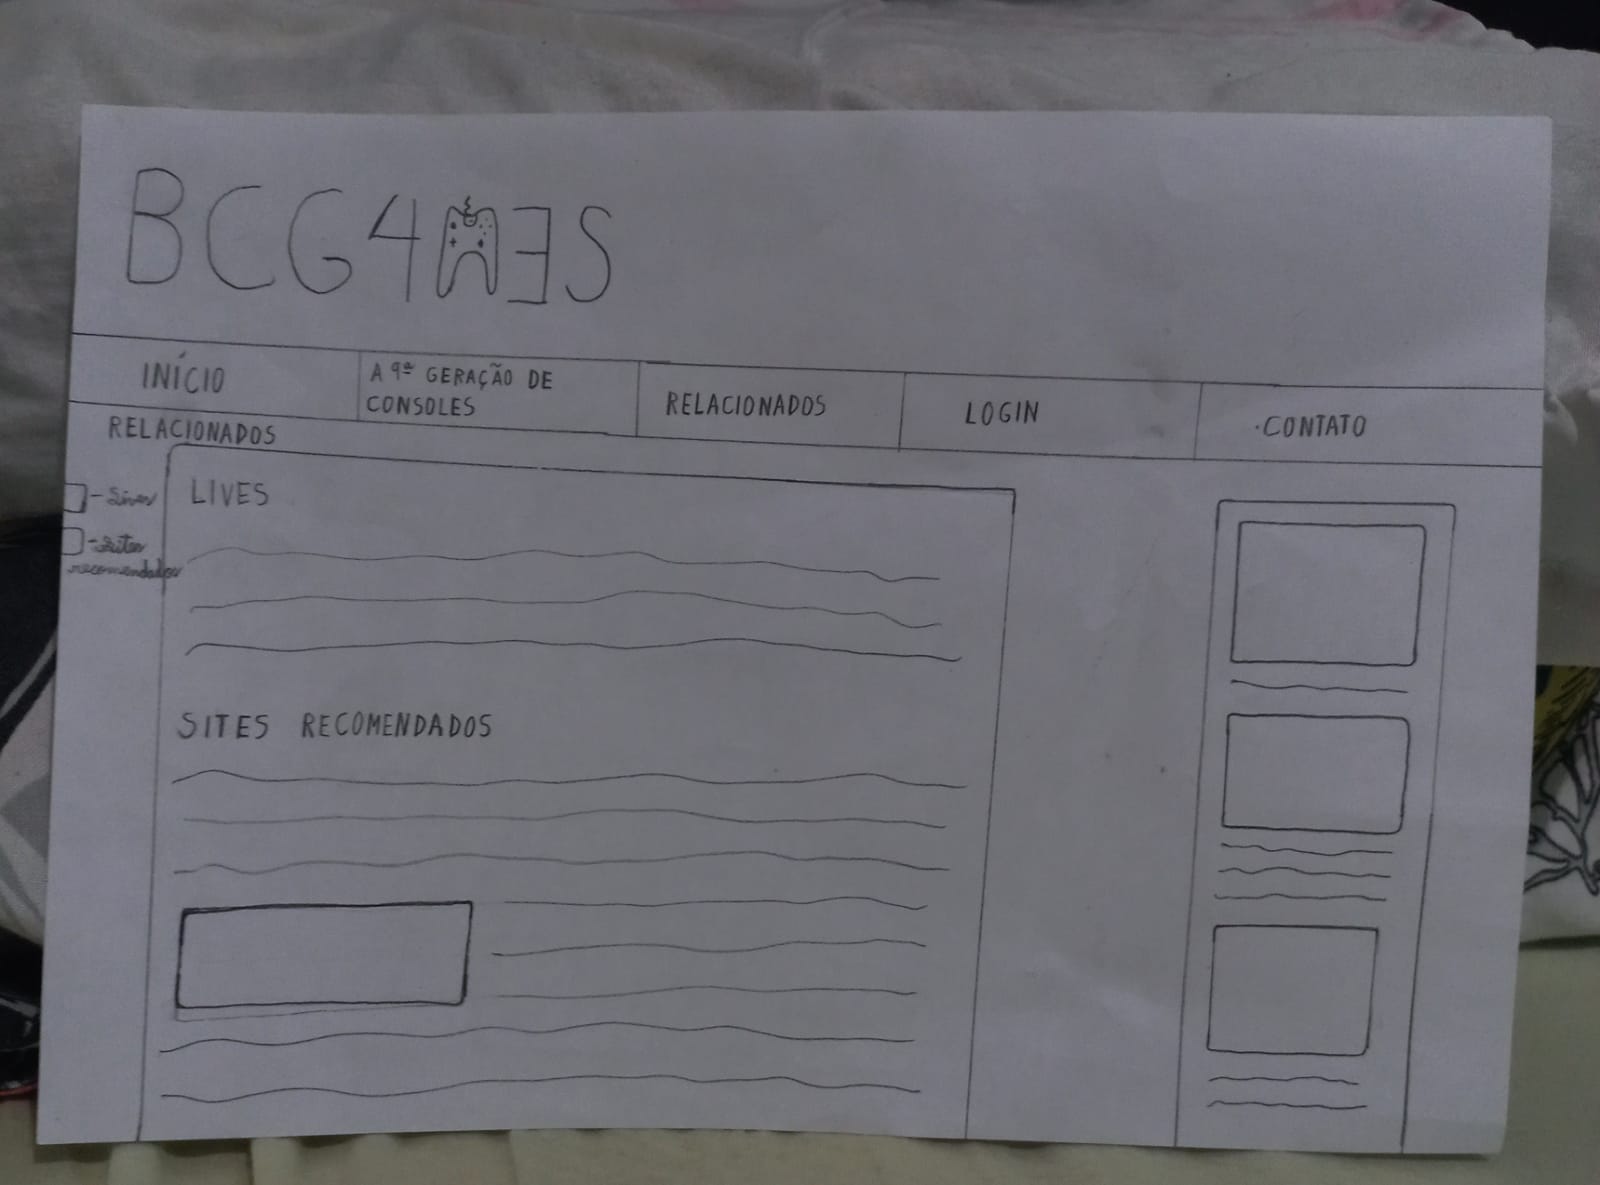 BCG4MES
INÍCIO
A 9ª GERAÇÃO DE
CONSOLES
RELACIONADOS
LOGIN
·CONTATO
RELACIONADOS
- Lives
- Sites
recomendados
LIVES
SITES RECOMENDADOS